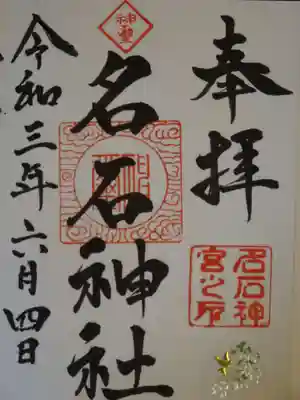 奉拝
神璽
名石神社
名石神
宮之印
令和三年六月四日